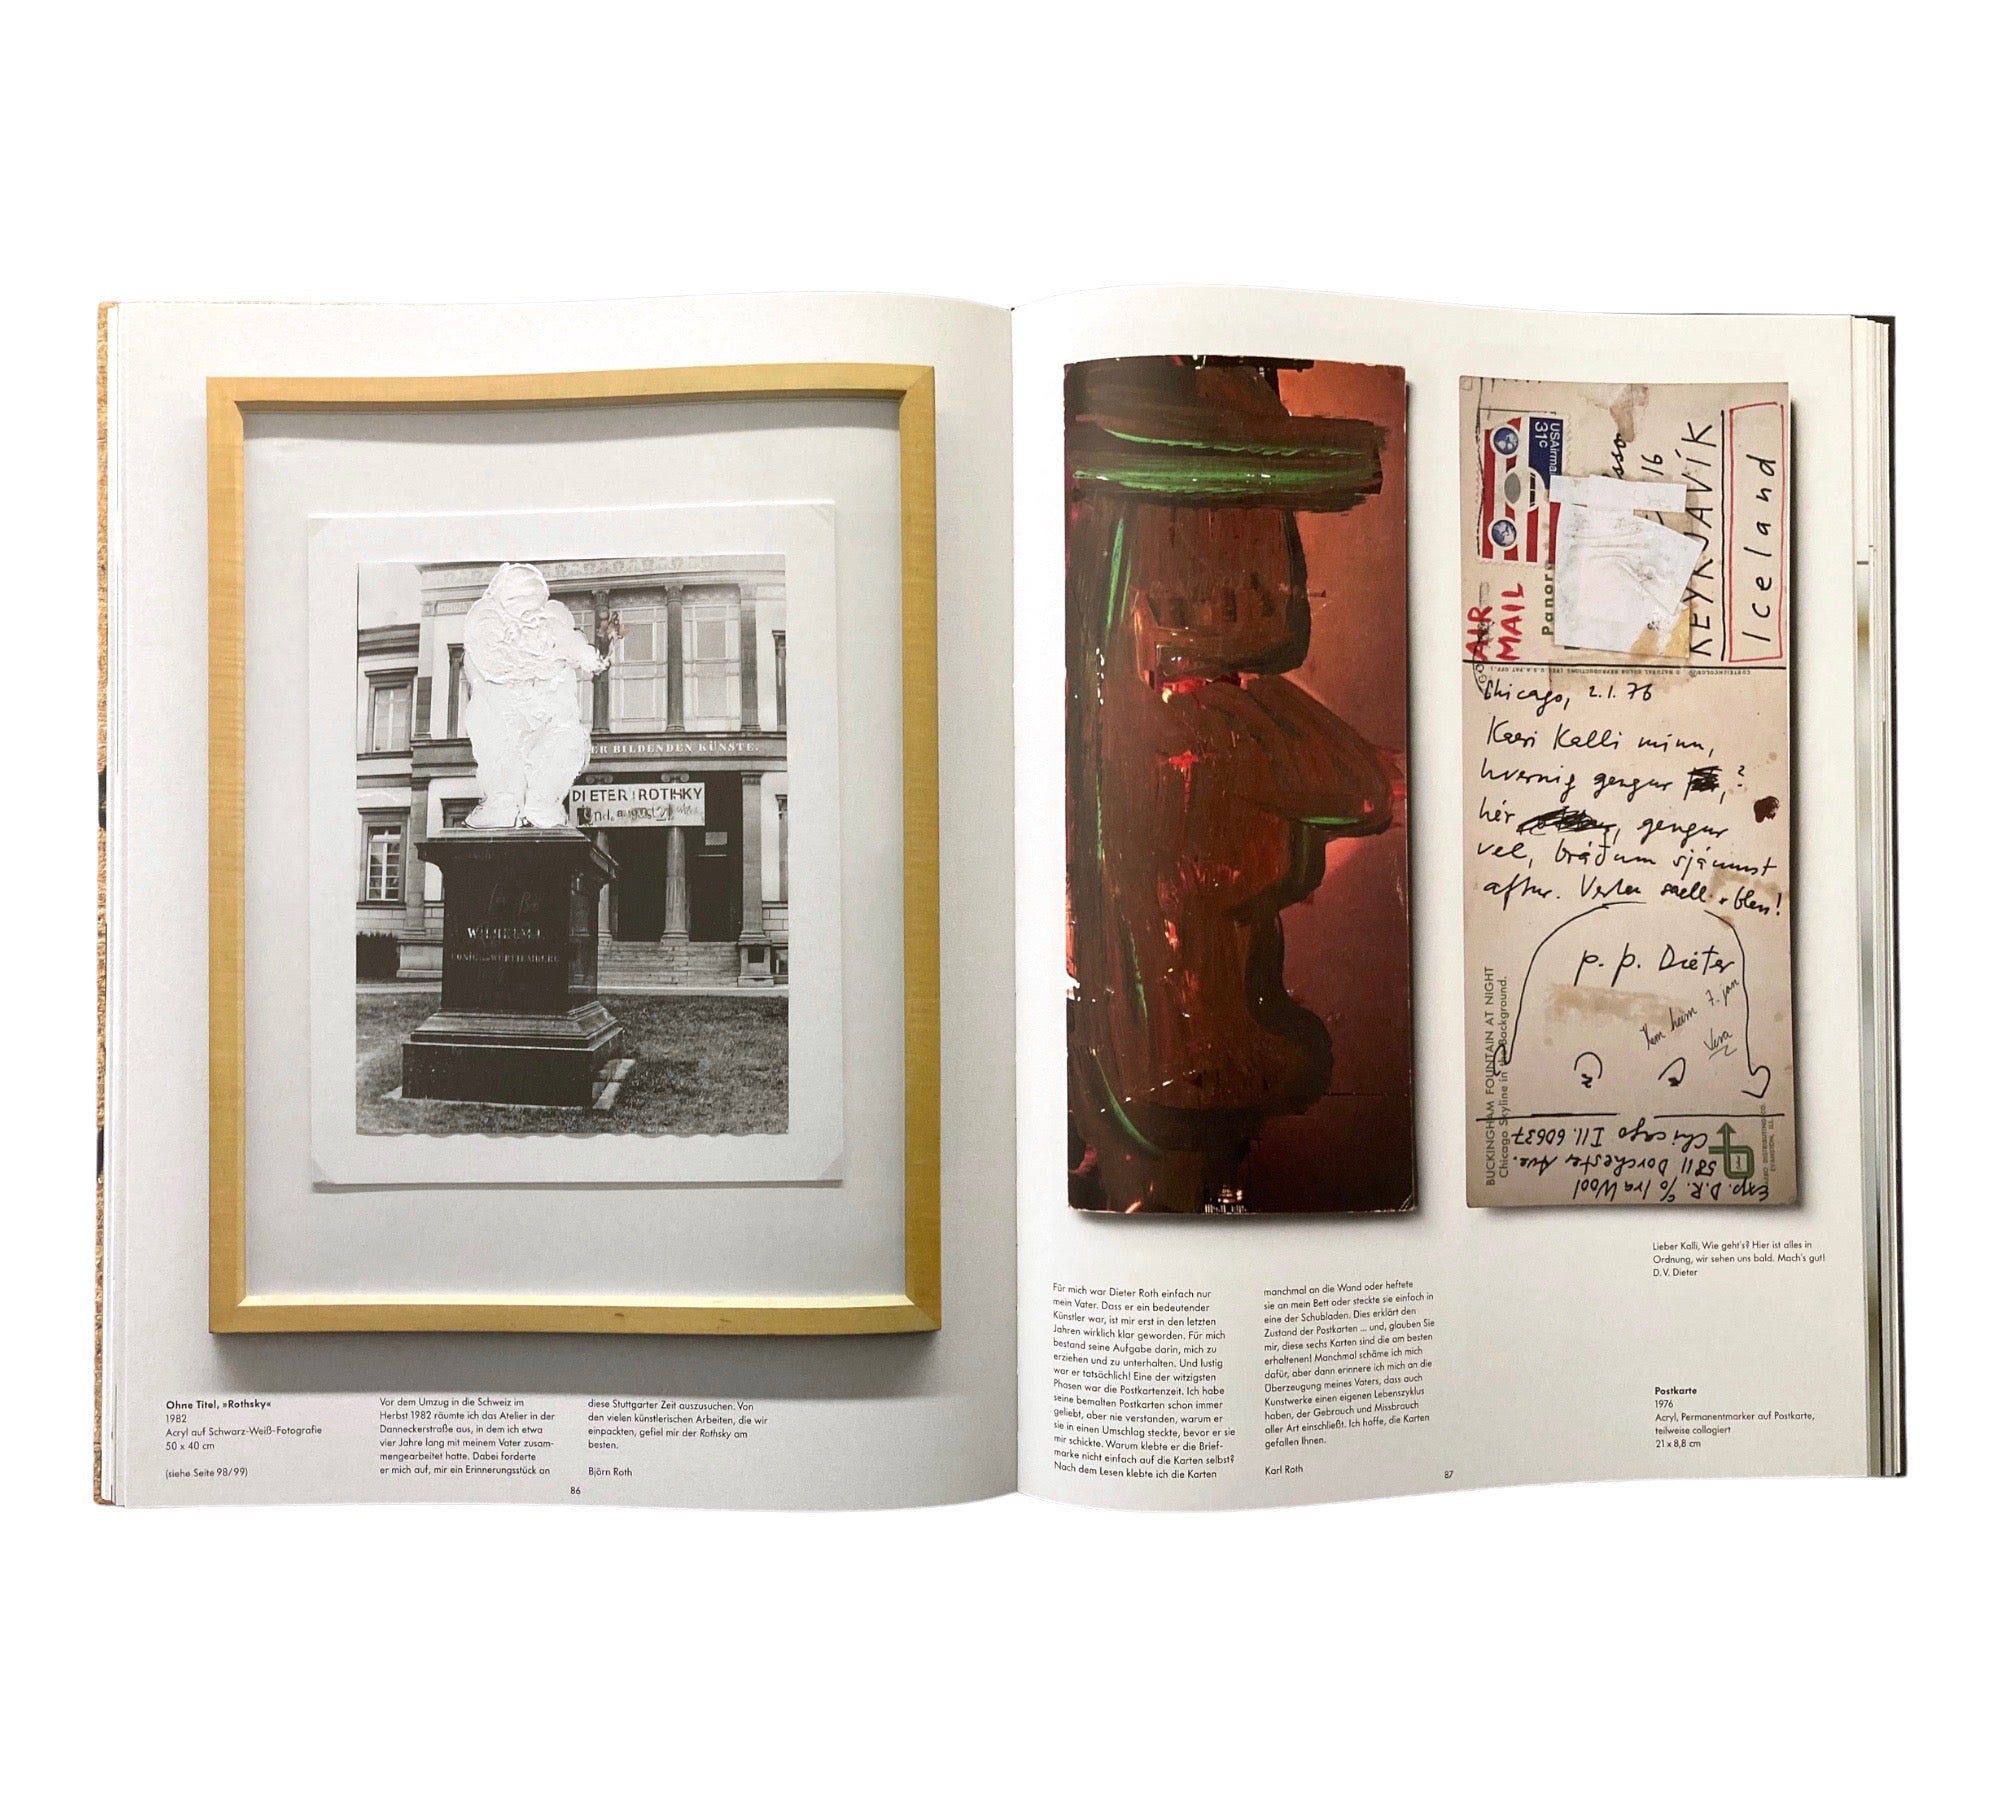 ER BILDENDEN KÜNSTE.
DIETER ROTHSKY
WILHELM I.
KÖNIG VON WÜRTTEMBERG
Ohne Titel, »Rothsky«
1982
Acryl auf Schwarz-Weiß-Fotografie
50 x 40 cm
(siehe Seite 98/99)
Vor dem Umzug in die Schweiz im
Herbst 1982 räumte ich das Atelier in der
Danneckerstraße aus, in dem ich etwa
vier Jahre lang mit meinem Vater zusam-
mengearbeitet hatte. Dabei forderte
er mich auf, mir ein Erinnerungsstück an
diese Stuttgarter Zeit auszusuchen. Von
den vielen künstlerischen Arbeiten, die wir
einpackten, gefiel mir der Rothsky am
besten.
Björn Roth
86
USAirmail
31c
AIR
MAIL
Panor
16
REYKJAVÍK
Iceland
CURTEICHCOLOR® NATURAL COLOR REPRODUCTIONS (REG. U.S.A. PAT. OFF.)
Chicago, 2.1.76
Kæri Kalli minn,
hvernig gengur ?
hér , gengur
vel, bráðum sjáumst
aftur. Vertu sæll & bless!
p. p. Dieter
Kem heim 7. jan
Vera
BUCKINGHAM FOUNTAIN AT NIGHT
Chicago Skyline in the Background.
Exp. D.R. c/o Ira Wool
5811 Dorchester Ave.
Chicago Ill. 60637
Lieber Kalli, Wie geht's? Hier ist alles in
Ordnung, wir sehen uns bald. Mach's gut!
D.V. Dieter
Für mich war Dieter Roth einfach nur
mein Vater. Dass er ein bedeutender
Künstler war, ist mir erst in den letzten
Jahren wirklich klar geworden. Für mich
bestand seine Aufgabe darin, mich zu
erziehen und zu unterhalten. Und lustig
war er tatsächlich! Eine der witzigsten
Phasen war die Postkartenzeit. Ich habe
seine bemalten Postkarten schon immer
geliebt, aber nie verstanden, warum er
sie in einen Umschlag steckte, bevor er sie
mir schickte. Warum klebte er die Brief-
marke nicht einfach auf die Karten selbst?
Nach dem Lesen klebte ich die Karten
manchmal an die Wand oder heftete
sie an mein Bett oder steckte sie einfach in
eine der Schubladen. Dies erklärt den
Zustand der Postkarten ... und, glauben Sie
mir, diese sechs Karten sind die am besten
erhaltenen! Manchmal schäme ich mich
dafür, aber dann erinnere ich mich an die
Überzeugung meines Vaters, dass auch
Kunstwerke einen eigenen Lebenszyklus
haben, der Gebrauch und Missbrauch
aller Art einschließt. Ich hoffe, die Karten
gefallen Ihnen.
Karl Roth
87
Postkarte
1976
Acryl, Permanentmarker auf Postkarte,
teilweise collagiert
21 x 8,8 cm